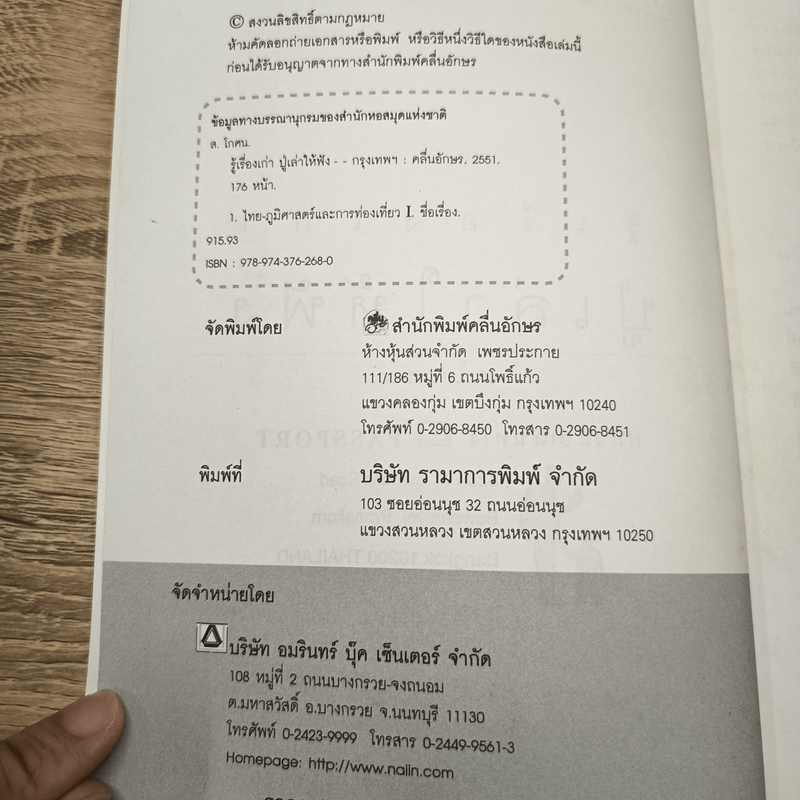 © สงวนลิขสิทธิ์ตามกฎหมาย
ห้ามคัดลอกถ่ายเอกสารหรือพิมพ์ หรือวิธีหนึ่งวิธีใดของหนังสือเล่มนี้
ก่อนได้รับอนุญาตจากทางสำนักพิมพ์คลื่นอักษร
ข้อมูลทางบรรณานุกรมของสำนักหอสมุดแห่งชาติ
ส. โกศน.
รู้เรื่องเก่า ปู่เล่าให้ฟัง - - กรุงเทพฯ : คลื่นอักษร, 2551.
176 หน้า.
1. ไทย-ภูมิศาสตร์และการท่องเที่ยว I. ชื่อเรื่อง.
915.93
ISBN : 978-974-376-268-0
จัดพิมพ์โดย สำนักพิมพ์คลื่นอักษร
ห้างหุ้นส่วนจำกัด เพชรประกาย
111/186 หมู่ที่ 6 ถนนโพธิ์แก้ว
แขวงคลองกุ่ม เขตบึงกุ่ม กรุงเทพฯ 10240
โทรศัพท์ 0-2906-8450 โทรสาร 0-2906-8451
พิมพ์ที่ บริษัท รามาการพิมพ์ จำกัด
103 ซอยอ่อนนุช 32 ถนนอ่อนนุช
แขวงสวนหลวง เขตสวนหลวง กรุงเทพฯ 10250
จัดจำหน่ายโดย
บริษัท อมรินทร์ บุ๊ค เซ็นเตอร์ จำกัด
108 หมู่ที่ 2 ถนนบางกรวย-จงถนอม
ต.มหาสวัสดิ์ อ.บางกรวย จ.นนทบุรี 11130
โทรศัพท์ 0-2423-9999 โทรสาร 0-2449-9561-3
Homepage: http://www.naiin.com